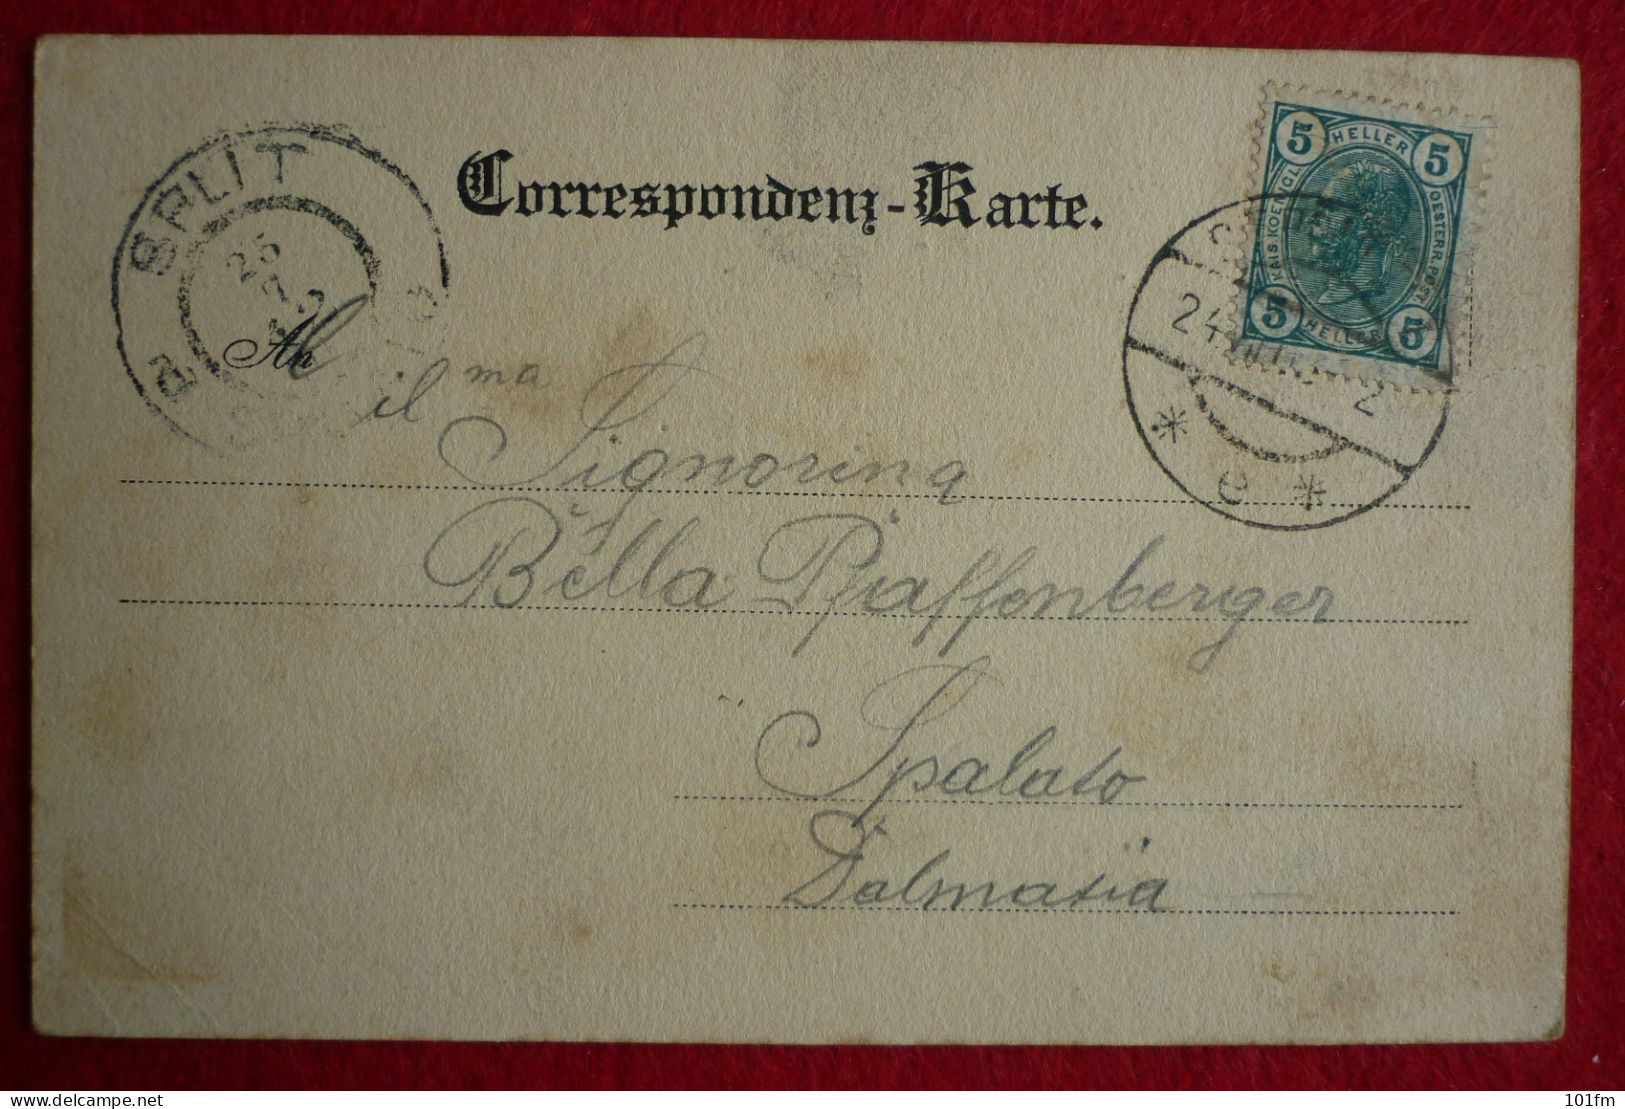 Correspondenz-Karte.
5 HELLER 5
KAIS. KOENIGL. OESTERR. POST.
5 HELLER 5
SPLIT
25
24
2
e
An
Signorina
Bella Pfaffenberger
Spalato
Dalmatia
delcampe.net
101fm